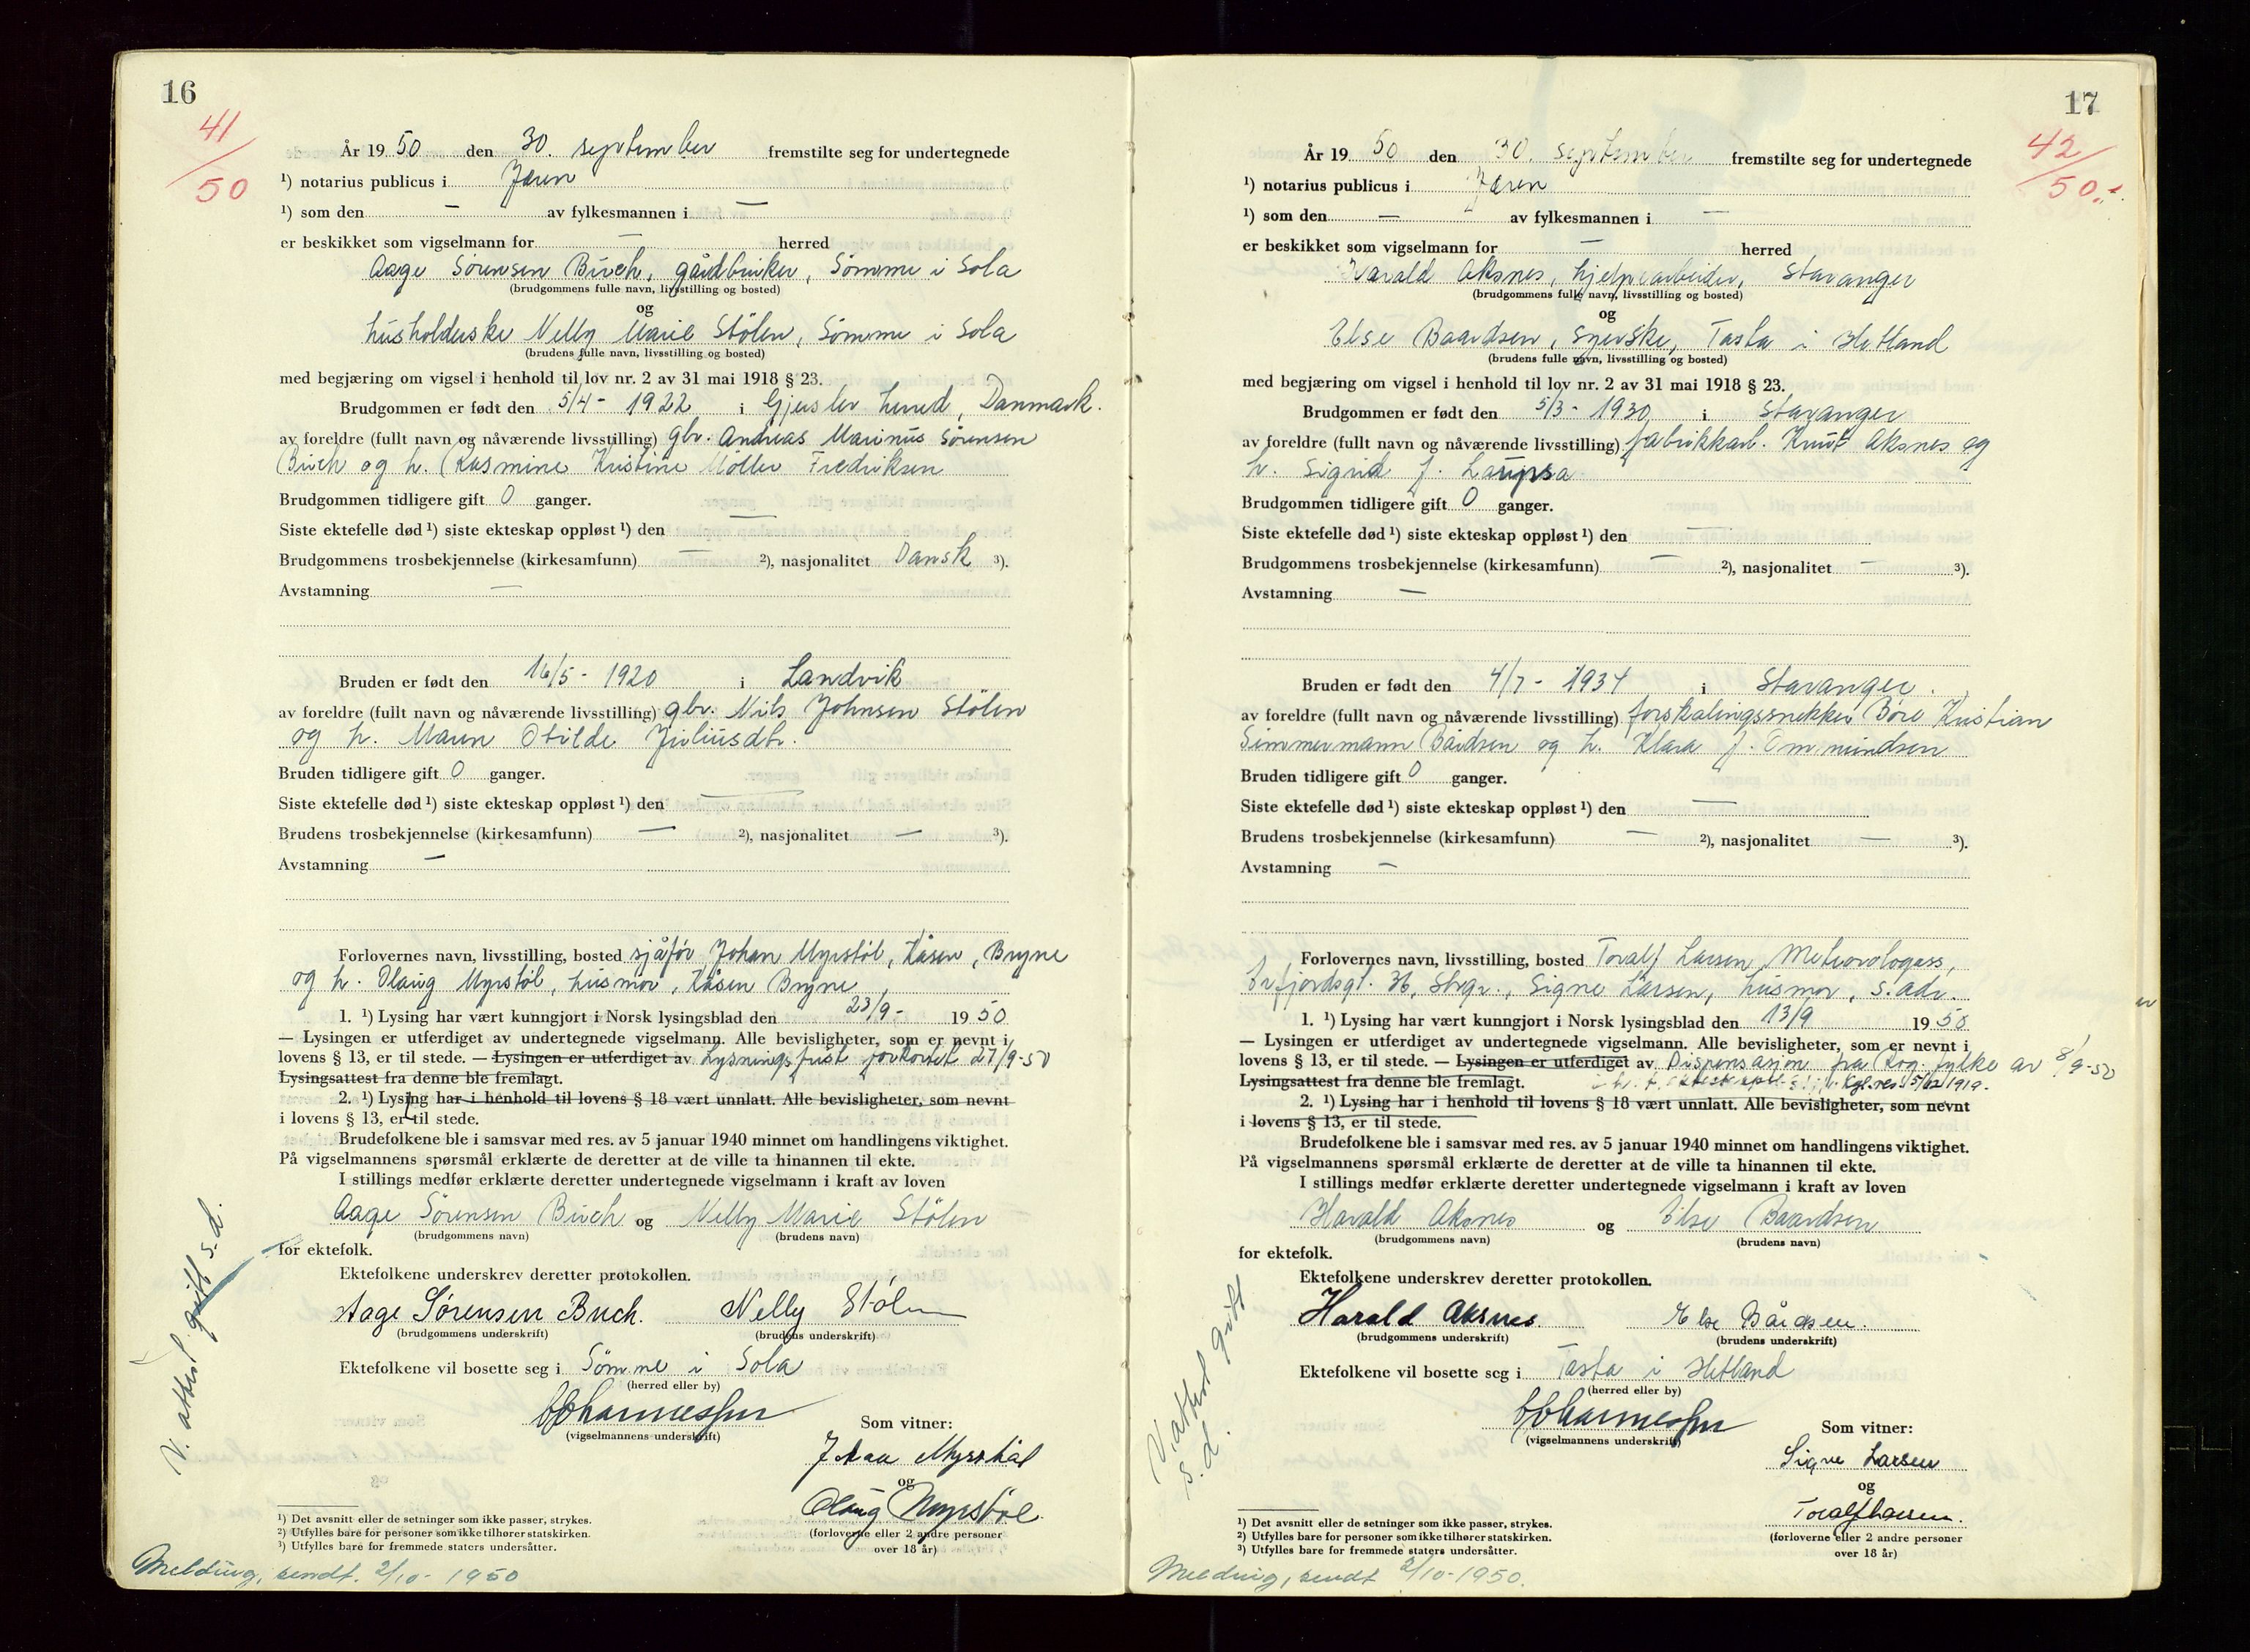 16
41
50
År 19 50 den 30. september fremstilte seg for undertegnede
¹) notarius publicus i Jæren
¹) som den — av fylkesmannen i —
er beskikket som vigselmann for — herred
Aage Sørensen Buch, gårdbruker, Sömme i Sola
(brudgommens fulle navn, livsstilling og bosted)
og
husholderske Nelly Marie Stölen, Sömme i Sola
(brudens fulle navn, livsstilling og bosted)
med begjæring om vigsel i henhold til lov nr. 2 av 31 mai 1918 § 23.
Brudgommen er født den 5/4 - 1922 i Gjerslev herred, Danmark.
av foreldre (fullt navn og nåværende livsstilling) gbr. Andreas Marinus Sørensen
Buch og h. Rasmine Kristine Möller Fredriksen
Brudgommen tidligere gift 0 ganger.
Siste ektefelle død ¹) siste ekteskap oppløst ¹) den —
Brudgommens trosbekjennelse (kirkesamfunn) — ²), nasjonalitet Dansk ³).
Avstamning —
Bruden er født den 16/5 - 1920 i Landvik
av foreldre (fullt navn og nåværende livsstilling) gbr. Nils Johnsen Stölen
og h. Maren Otilde Juliusdtr.
Bruden tidligere gift 0 ganger.
Siste ektefelle død ¹) siste ekteskap oppløst ¹) den —
Brudens trosbekjennelse (kirkesamfunn) — ²), nasjonalitet — ³).
Avstamning —
Forlovernes navn, livsstilling, bosted sjåfør Johan Myrstöl, Kåsen, Bryne
og h. Olaug Myrstöl, husmor, Kåsen Bryne
1. ¹) Lysing har vært kunngjort i Norsk lysingsblad den 23/9 - 19 50
— Lysingen er utferdiget av undertegnede vigselmann. Alle bevisligheter, som er nevnt i
lovens § 13, er til stede. — Lysingen er utferdiget av Lysningsfrist forkortet 27/9-50
Lysingsattest fra denne ble fremlagt.
2. ¹) Lysing har i henhold til lovens § 18 vært unnlatt. Alle bevisligheter, som nevnt
i lovens § 13, er til stede.
Brudefolkene ble i samsvar med res. av 5 januar 1940 minnet om handlingens viktighet.
På vigselmannens spørsmål erklærte de deretter at de ville ta hinannen til ekte.
I stillings medfør erklærte deretter undertegnede vigselmann i kraft av loven
Aage Sørensen Buch og Nelly Marie Stölen
(brudgommens navn) (brudens navn)
for ektefolk.
Ektefolkene underskrev deretter protokollen.
Aage Sørensen Buch. Nelly Stölen
(brudgommens underskrift) (brudens underskrift)
Ektefolkene vil bosette seg i Sömme i Sola
(herred eller by)
(vigselmannens underskrift)
Som vitner:
Johan Myrstöl
og
Olaug Myrstöl.
(forloverne eller 2 andre personer
over 18 år)
¹) Det avsnitt eller de setninger som ikke passer, strykes.
²) Utfylles bare for personer som ikke tilhører statskirken.
³) Utfylles bare for fremmede staters undersåtter.
V. attest gitt s.d.
Melding, sendt. 2/10 - 1950
17
42
50.
År 19 50 den 30. september fremstilte seg for undertegnede
¹) notarius publicus i Jæren
¹) som den — av fylkesmannen i —
er beskikket som vigselmann for — herred
Harald Aksnes, hjelpearbeider, Stavanger
(brudgommens fulle navn, livsstilling og bosted)
og
Else Baardsen, syerske, Tasta i Hetland
(brudens fulle navn, livsstilling og bosted)
med begjæring om vigsel i henhold til lov nr. 2 av 31 mai 1918 § 23.
Brudgommen er født den 5/3 - 1930 i Stavanger
av foreldre (fullt navn og nåværende livsstilling) fabrikkarb. Knut Aksnes og
h. Sigrid f. Laupsa
Brudgommen tidligere gift 0 ganger.
Siste ektefelle død ¹) siste ekteskap oppløst ¹) den —
Brudgommens trosbekjennelse (kirkesamfunn) — ²), nasjonalitet — ³).
Avstamning —
Bruden er født den 4/7 - 1934 i Stavanger.
av foreldre (fullt navn og nåværende livsstilling) forskalingssnekker Bore Kristian
Simmermann Bårdsen og h. Klara f. Ommundsen
Bruden tidligere gift 0 ganger.
Siste ektefelle død ¹) siste ekteskap oppløst ¹) den —
Brudens trosbekjennelse (kirkesamfunn) — ²), nasjonalitet — ³).
Avstamning —
Forlovernes navn, livsstilling, bosted Toralf Larsen, Meteorologass,
Erfjordsgt. 36, Stvgr., Signe Larsen, husmor, s. adr.
1. ¹) Lysing har vært kunngjort i Norsk lysingsblad den 13/9 19 50
— Lysingen er utferdiget av undertegnede vigselmann. Alle bevisligheter, som er nevnt i
lovens § 13, er til stede. — Lysingen er utferdiget av Dispensasjon fra Rog. fylke av 8/9-50
Lysingsattest fra denne ble fremlagt. Kgl. res. 5/12 1919.
2. ¹) Lysing har i henhold til lovens § 18 vært unnlatt. Alle bevisligheter, som nevnt
i lovens § 13, er til stede.
Brudefolkene ble i samsvar med res. av 5 januar 1940 minnet om handlingens viktighet.
På vigselmannens spørsmål erklærte de deretter at de ville ta hinannen til ekte.
I stillings medfør erklærte deretter undertegnede vigselmann i kraft av loven
Harald Aksnes og Else Baardsen
(brudgommens navn) (brudens navn)
for ektefolk.
Ektefolkene underskrev deretter protokollen.
Harald Aksnes Else Bårdsen.
(brudgommens underskrift) (brudens underskrift)
Ektefolkene vil bosette seg i Tasta i Hetland
(herred eller by)
(vigselmannens underskrift)
Som vitner:
Signe Larsen
og
Toralf Larsen.
(forloverne eller 2 andre personer
over 18 år)
¹) Det avsnitt eller de setninger som ikke passer, strykes.
²) Utfylles bare for personer som ikke tilhører statskirken.
³) Utfylles bare for fremmede staters undersåtter.
V. attest gitt
s.d.
Melding, sendt 2/10-1950.